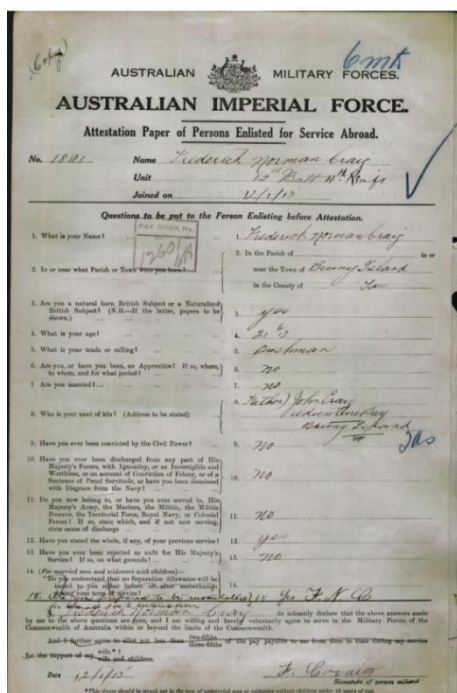 (Copy)
AUSTRALIAN MILITARY FORCES.
AUSTRALIAN IMPERIAL FORCE.
Attestation Paper of Persons Enlisted for Service Abroad.
No. 1821 Name Frederick Norman Craig
Unit 12th Batt 4th Reinfs
Joined on
Questions to be put to the Person Enlisting before Attestation.
1. What is your Name? ... 1. Frederick Norman Craig
PAY BOOK No.
12601
2. In or near what Parish or Town were you born? 2. In the Parish of in or
near the Town of Bruny Island
in the County of Tas
3. Are you a natural born British Subject or a Naturalized
British Subject? (N.B.—If the latter, papers to be
shown.) 3. yes
4. What is your age? 4. 21
5. What is your trade or calling? 5. Bushman
6. Are you, or have you been, an Apprentice? If so, where,
to whom, and for what period? 6. no
7. Are you married? ... 7. no
8. Who is your next of kin? (Address to be stated) 8. (Father) John Craig
Island
Tas
9. Have you ever been convicted by the Civil Power? 9. no
10. Have you ever been discharged from any part of His
Majesty's Forces, with Ignominy, or as Incorrigible and
Worthless, or on account of Conviction of Felony, or of a
Sentence of Penal Servitude, or have you been dismissed
with Disgrace from the Navy? 10. no
11. Do you now belong to, or have you ever served in, His
Majesty's Army, the Marines, the Militia, the Militia
Reserve, the Territorial Force, Royal Navy, or Colonial
Forces? If so, state which, and if not now serving,
state cause of discharge 11. no
12. Have you stated the whole, if any, of your previous service? 12. yes
13. Have you ever been rejected as unfit for His Majesty's
Service? If so, on what grounds? 13. no
14. (For married men and widowers with children)—
"Do you understand that no Separation Allowance will be
issued to you either before or after embarkation
during your term of service? 14.
15. Are you prepared to be inoculated 15 Yes F N C
I, Frederick Norman Craig do solemnly declare that the above answers made
by me to the above questions are true, and I am willing and hereby voluntarily agree to serve in the Military Forces of the
Commonwealth of Australia within or beyond the limits of the Commonwealth.
And I further agree to allot not less than two-fifths three-fifths of the pay payable to me from time to time during my service
for the support of my wife.
wife and children.
Date
F. Craig
Signature of person enlisted